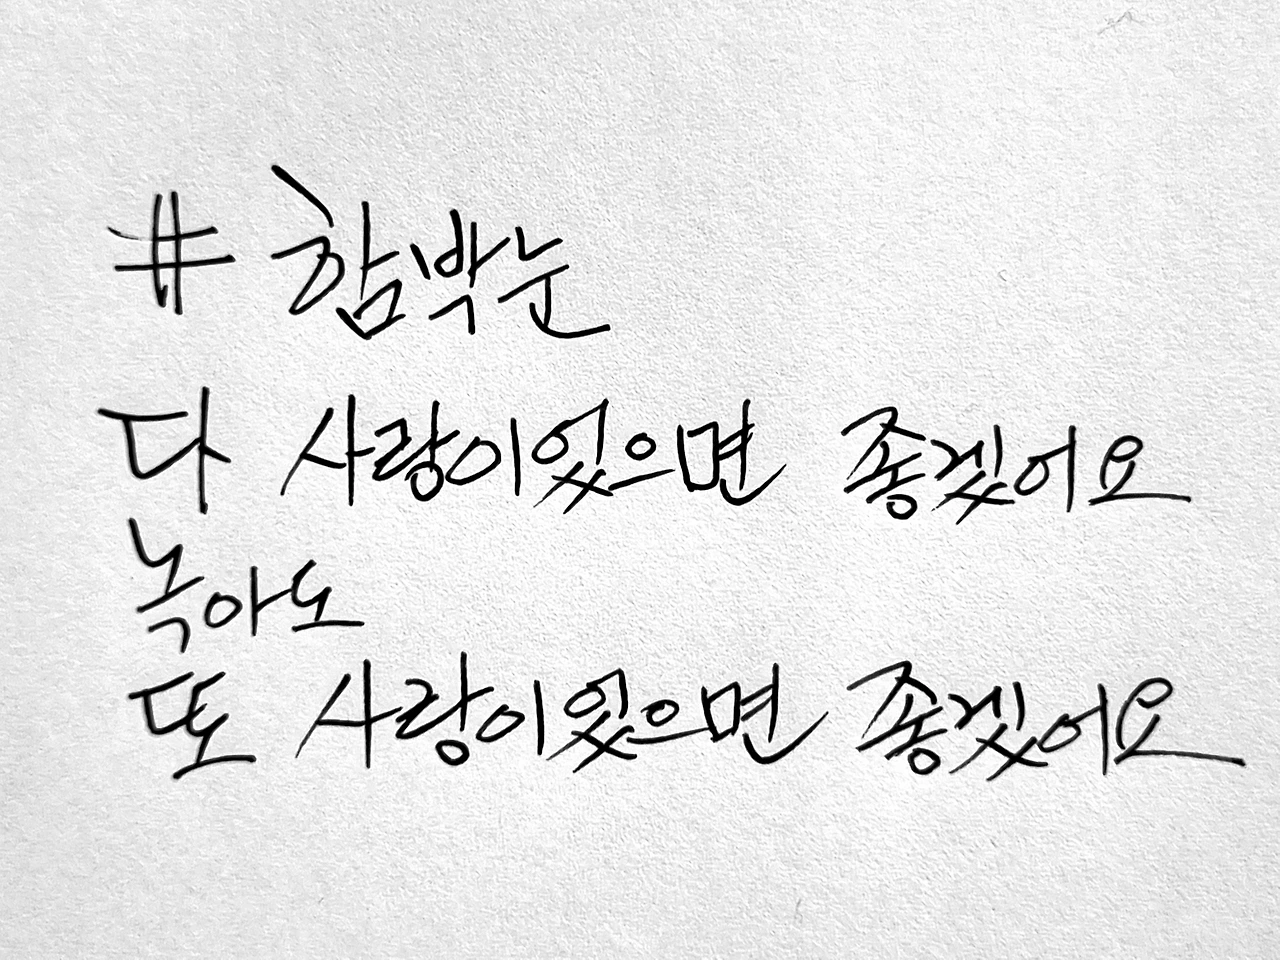 # 함박눈
다 사랑이었으면 좋겠어요
녹아도
또 사랑이었으면 좋겠어요